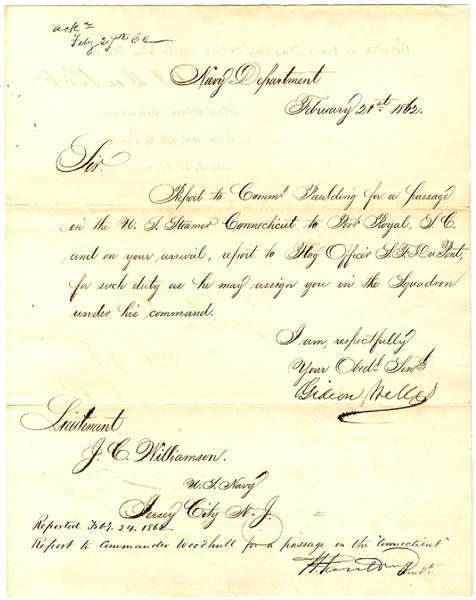 ackd
Feby 27th 62
Navy Department
February 21st 1862.
Sir.
Report to Commo. Paulding for a passage
in the U. S. Steamer Connecticut to Port Royal, S. C.
and on your arrival, report to Flag Officer S. F. DuPont,
for such duty as he may assign you in the Squadron
under his command.
I am, respectfully
Your Obedt. Servt.
Gideon Welles
Lieutenant
J. C. Williamson.
U. S. Navy
Jersey City N. J.
Reported Feby. 24. 1862
Report to Commander Woodhull for a passage on the "Connecticut"
H Paulding
Comdt.